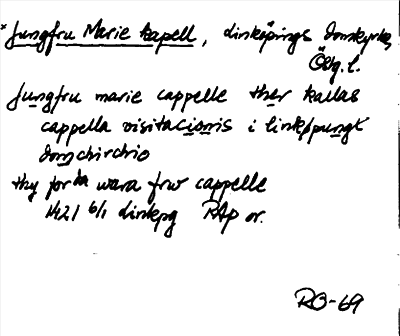 * Jungfru Marie kapell, Linköpings domkyrka,
Ög. l.
Jungfru marie cappelle ther kallas
cappella visitacionis i linköpungx
domchirchio
thy for:ba wara frw cappelle
1421 6/1 Linkpg RAp or.
RO-69